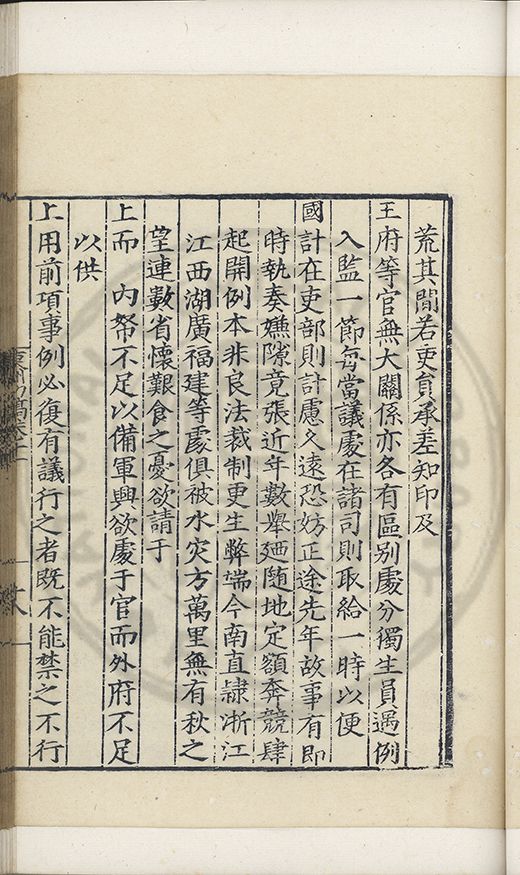 荒其間若吏員承差知印及
王府等官無大關係亦各有區别處分獨生員遇例
入監一節每當議處在諸司則取給一時以便
國計在吏部則計慮久遠恐妨正途先年故事有即
時執奏嫌隙竟張近年數舉廼隨地定額奔競肆
起開例本非良法裁制更生弊端今南直隸浙江
江西湖廣福建等處俱被水灾方萬里無有秋之
望連數省懷艱食之憂欲請于
上而　内帑不足以備軍興欲處于官而外府不足
以供
上用前項事例必復有議行之者既不能禁之不行